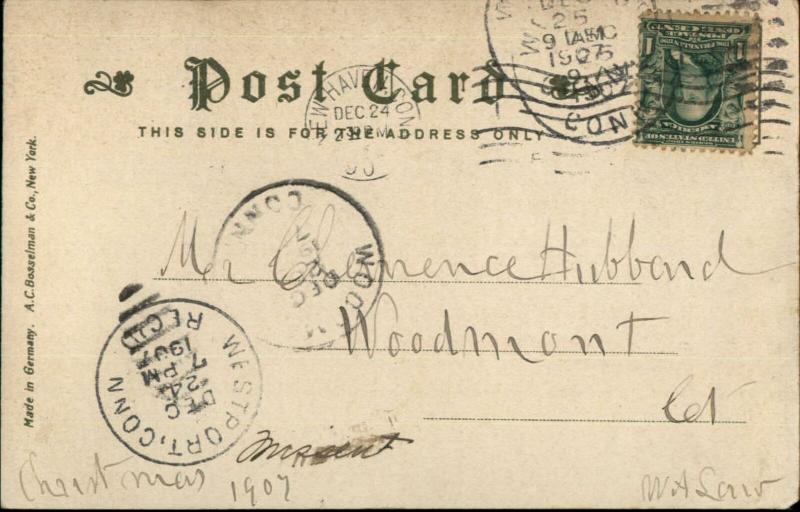 Post Card
THIS SIDE IS FOR THE ADDRESS ONLY
NEW HAVEN, CONN
DEC 24
DEC
25
1907
CONN
ONE CENT
UNITED STATES OF AMERICA
WOOD
CONN
DEC
Mr Clarence Hubbard
Woodmont
Ct
WESTPORT, CONN
DEC
24
PM
1907
REC'D
Missent
Christmas
1907
Made in Germany. A.C. Bosselman & Co., New York.